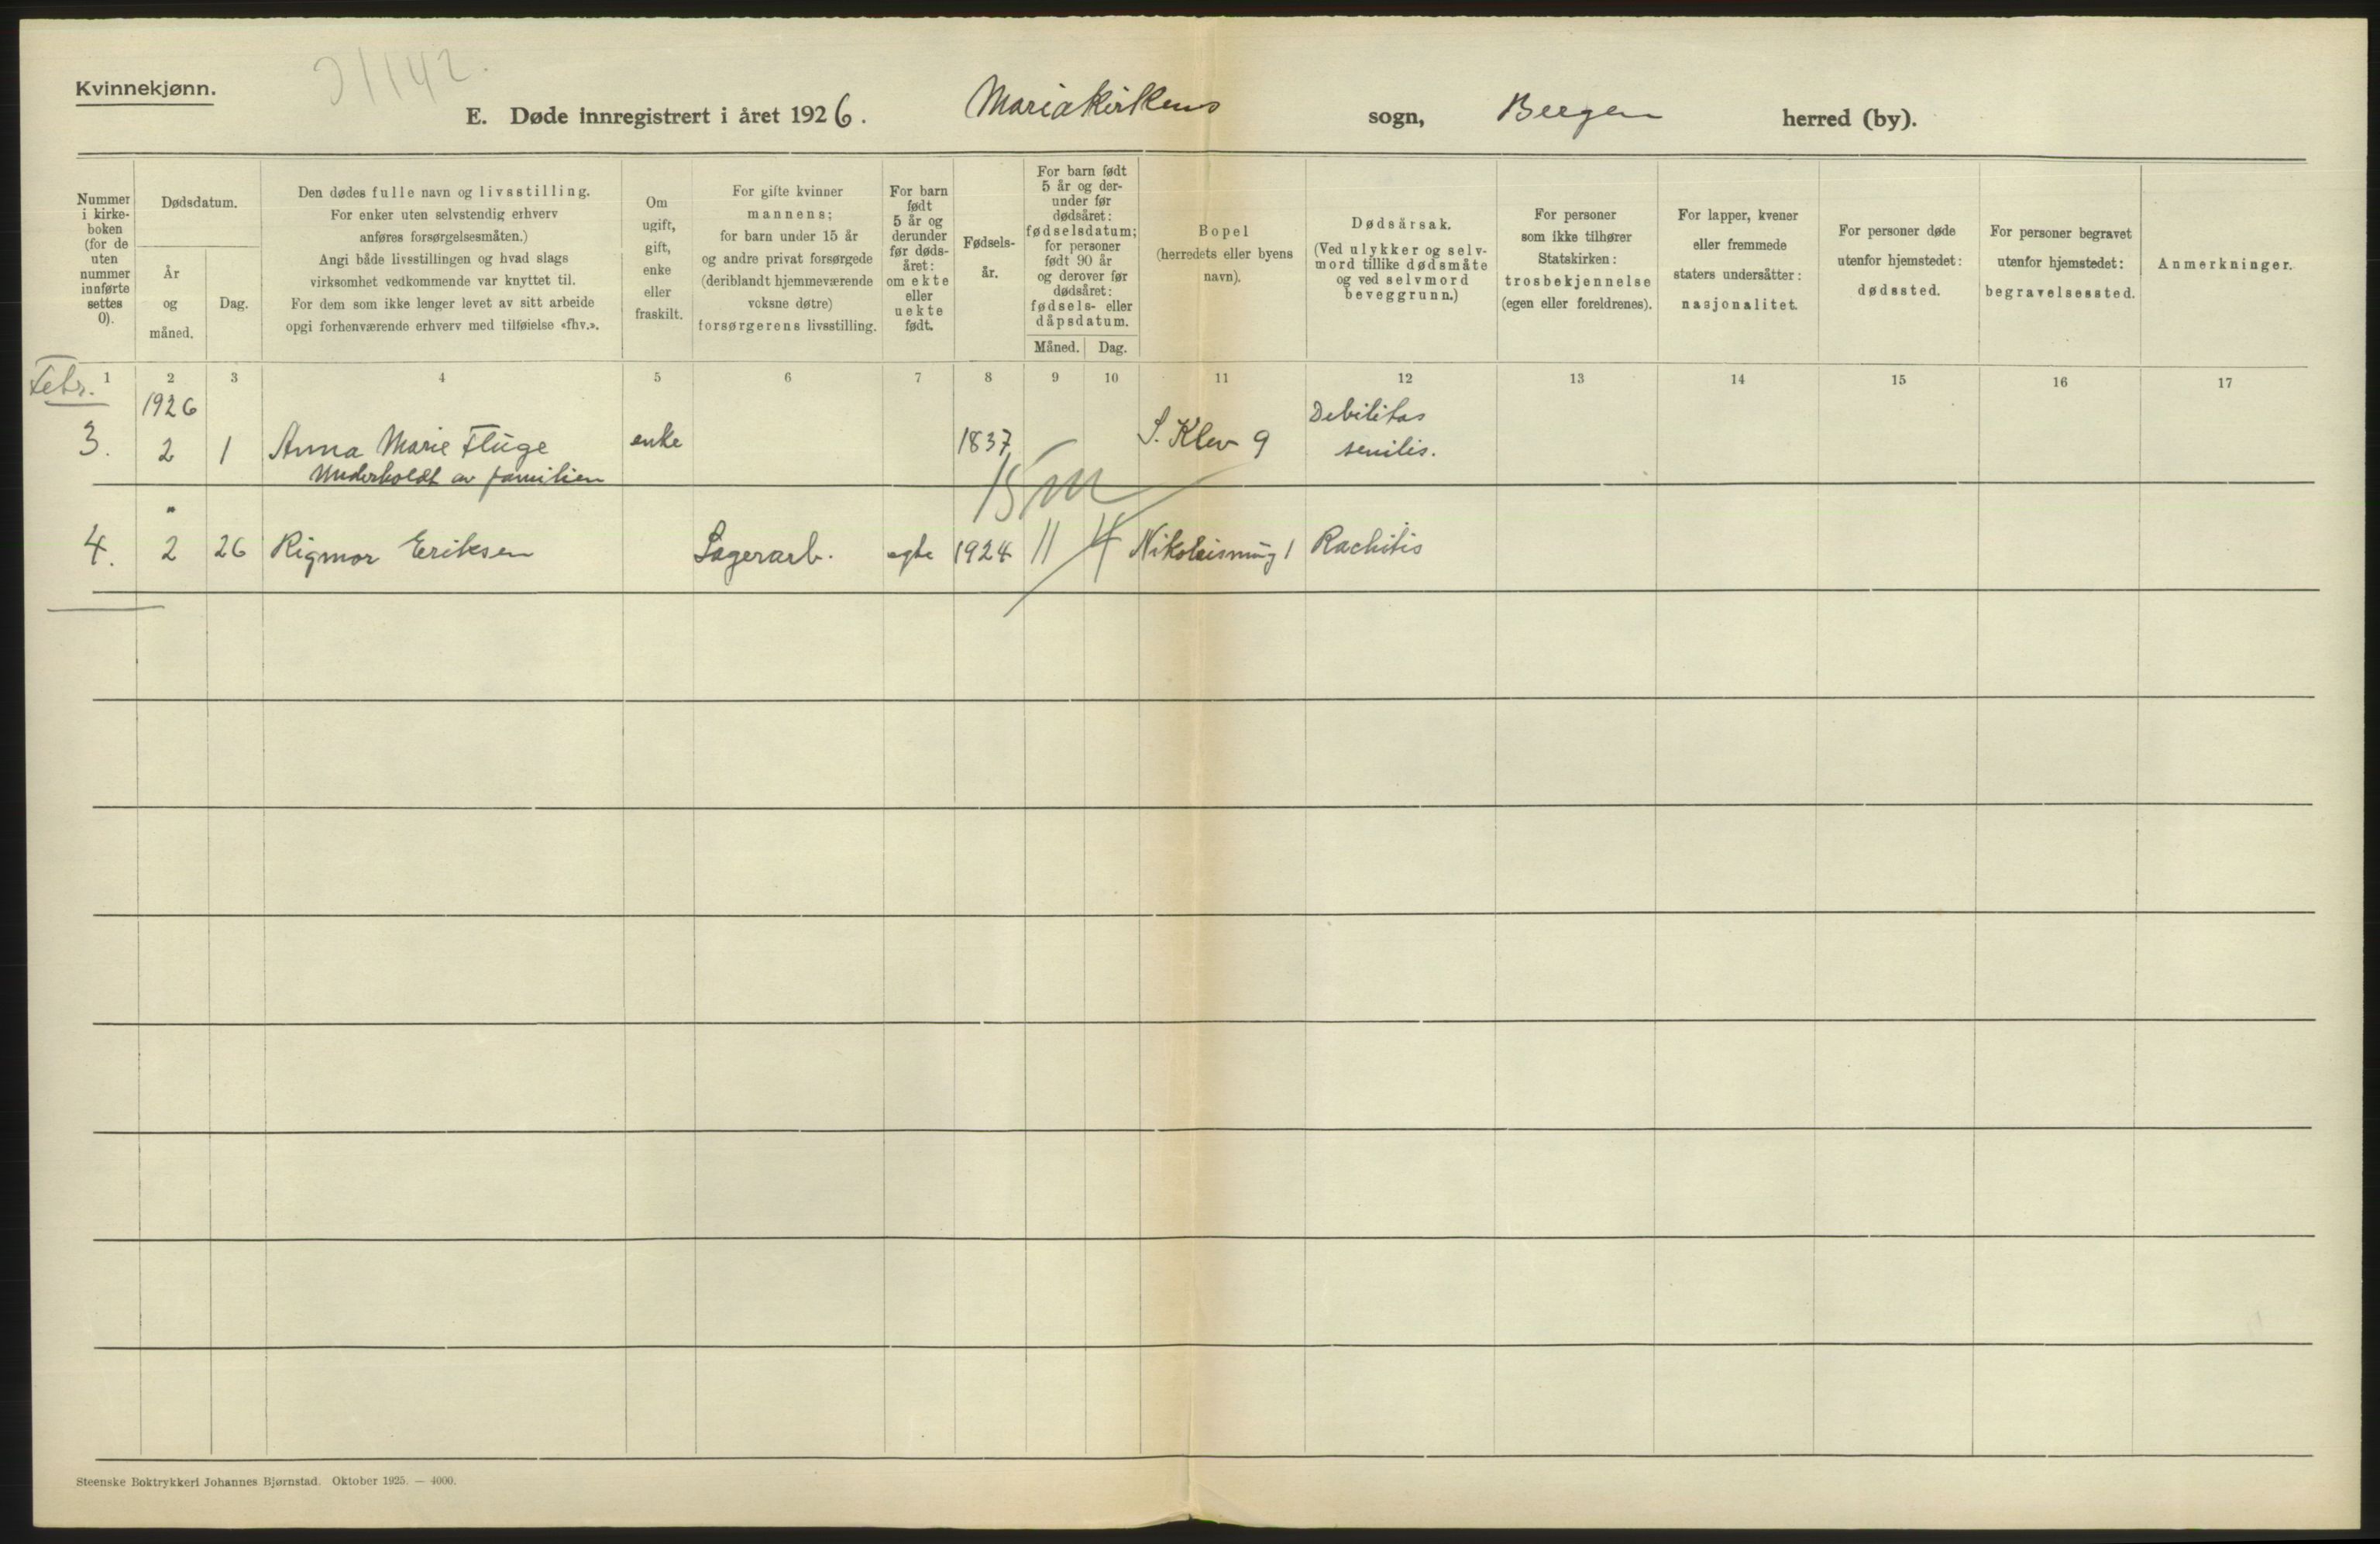 Kvinnekjønn.
E. Døde innregistrert i året 1926. Mariakirkens sogn, Bergen herred (by).
Nummer
i kirke-
boken
(for de
uten
nummer
innførte
settes
0).
Dødsdatum.
År
og
måned.
Dag.
Den dødes fulle navn og livsstilling.
For enker uten selvstendig erhverv
anføres forsørgelsesmåten.)
Angi både livsstillingen og hvad slags
virksomhet vedkommende var knyttet til.
For dem som ikke lenger levet av sitt arbeide
opgi forhenværende erhverv med tilføielse «fhv.».
Om
ugift,
gift,
enke
eller
fraskilt.
For gifte kvinner
mannens;
for barn under 15 år
og andre privat forsørgede
(deriblandt hjemmeværende
voksne døtre)
forsørgerens livsstilling.
For barn
født
5 år og
derunder
før døds-
året:
om ekte
eller
uekte
født.
Fødsels-
år.
For barn født
5 år og der-
under før
dødsåret:
fødselsdatum;
for personer
født 90 år
og derover før
dødsåret:
fødsels- eller
dåpsdatum.
Måned. Dag.
Bopel
(herredets eller byens
navn).
Dødsårsak.
(Ved ulykker og selv-
mord tillike dødsmåte
og ved selvmord
beveggrunn.)
For personer
som ikke tilhører
Statskirken:
trosbekjennelse
(egen eller foreldrenes).
For lapper, kvener
eller fremmede
staters undersåtter:
nasjonalitet.
For personer døde
utenfor hjemstedet:
dødssted.
For personer begravet
utenfor hjemstedet:
begravelsessted.
Anmerkninger.
Febr. 1 2 3 4 5 6 7 8 9 10 11 12 13 14 15 16 17
1926 Debilitas
3. 2 1 Anna Marie Fluge enke 1837 S. Klev 9 senilis.
Underholdt av familien
15 m
"
4. 2 26 Rigmor Eriksen Lagerarb. egte 1924 11 4 1 Rachitis
Steenske Boktrykkeri Johannes Bjørnstad. Oktober 1925. — 4000.